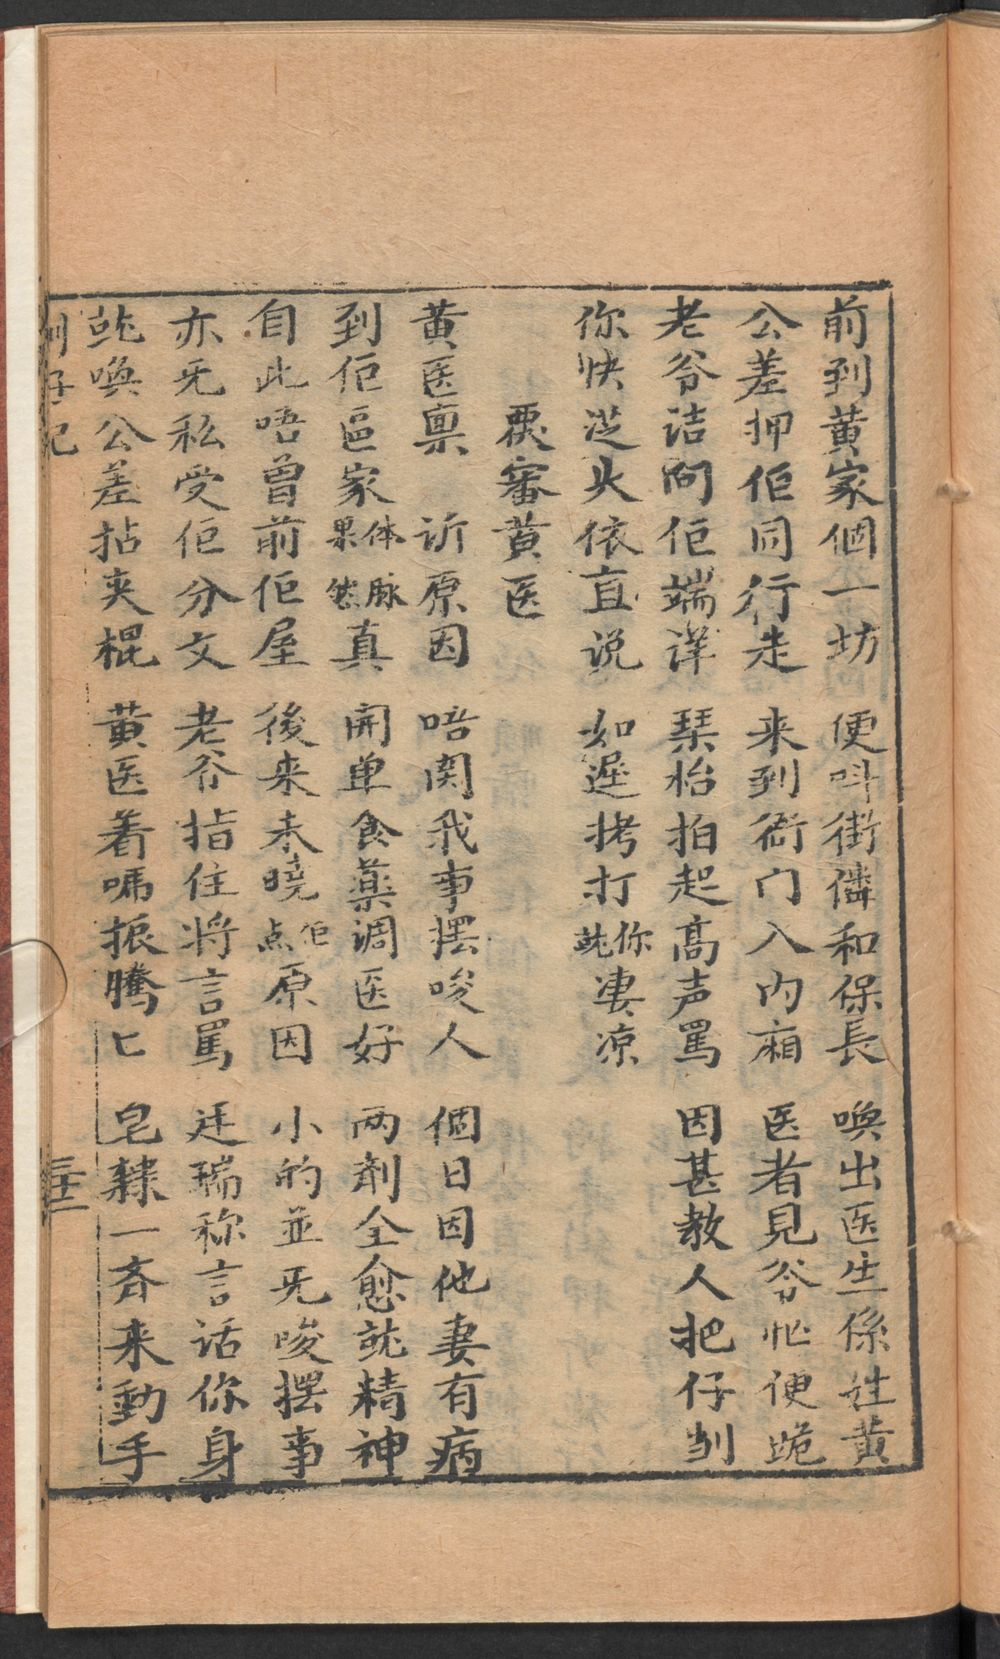 前到黄家個一坊　便呌街隣和保長　喚出医生係姓黄
公差押佢同行走　来到衙门入内廂　医者見爷忙便跪
老爷诘问佢端详　琹枱拍起髙声罵　因甚教人把仔㓥
你快迯头依直说　如遅拷打你就凄凉
覆審黄医
黄医禀　诉原因　唔関我事摆唆人　個日因他妻有病
到佢區家体脉果然真　開单食藥调医好　两剤全愈就精神
自此唔曾前佢屋　後来未曉佢点原因　小的並旡唆摆事
亦旡私受佢分文　老爷指住将言罵　廷瑞称言话你身
就喚公差拈夹棍　黄医着嗎振騰匕　皂隸一斉来動手
㓥仔记　三十二